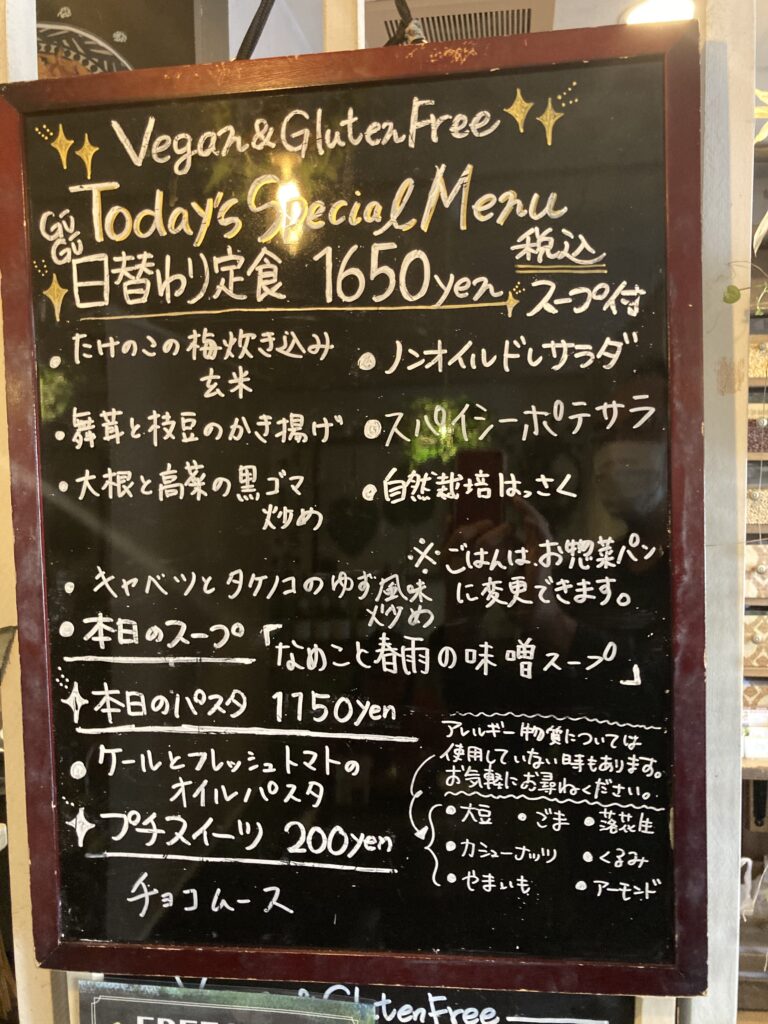 Vegan&GlutenFree
Today's Special Menu
GūGū
日替わり定食 1650yen
税込
スープ付
・たけのこの梅炊き込み
玄米
・舞茸と枝豆のかき揚げ
・大根と高菜の黒ゴマ
炒め
・ノンオイルドレサラダ
・スパイシーポテサラ
・自然栽培はっさく
※ごはんは、お惣菜パン
に変更できます。
・キャベツとタケノコのゆず風味
炒め
・本日のスープ「なめこと春雨の味噌スープ」
本日のパスタ 1150yen
・ケールとフレッシュトマトの
オイルパスタ
プチスイーツ 200yen
チョコムース
アレルギー物質については
使用していない時もあります。
お気軽にお尋ねください。
・大豆 ・ごま ・落花生
・カシューナッツ ・くるみ
・やまいも ・アーモンド
Vegan&GlutenFree